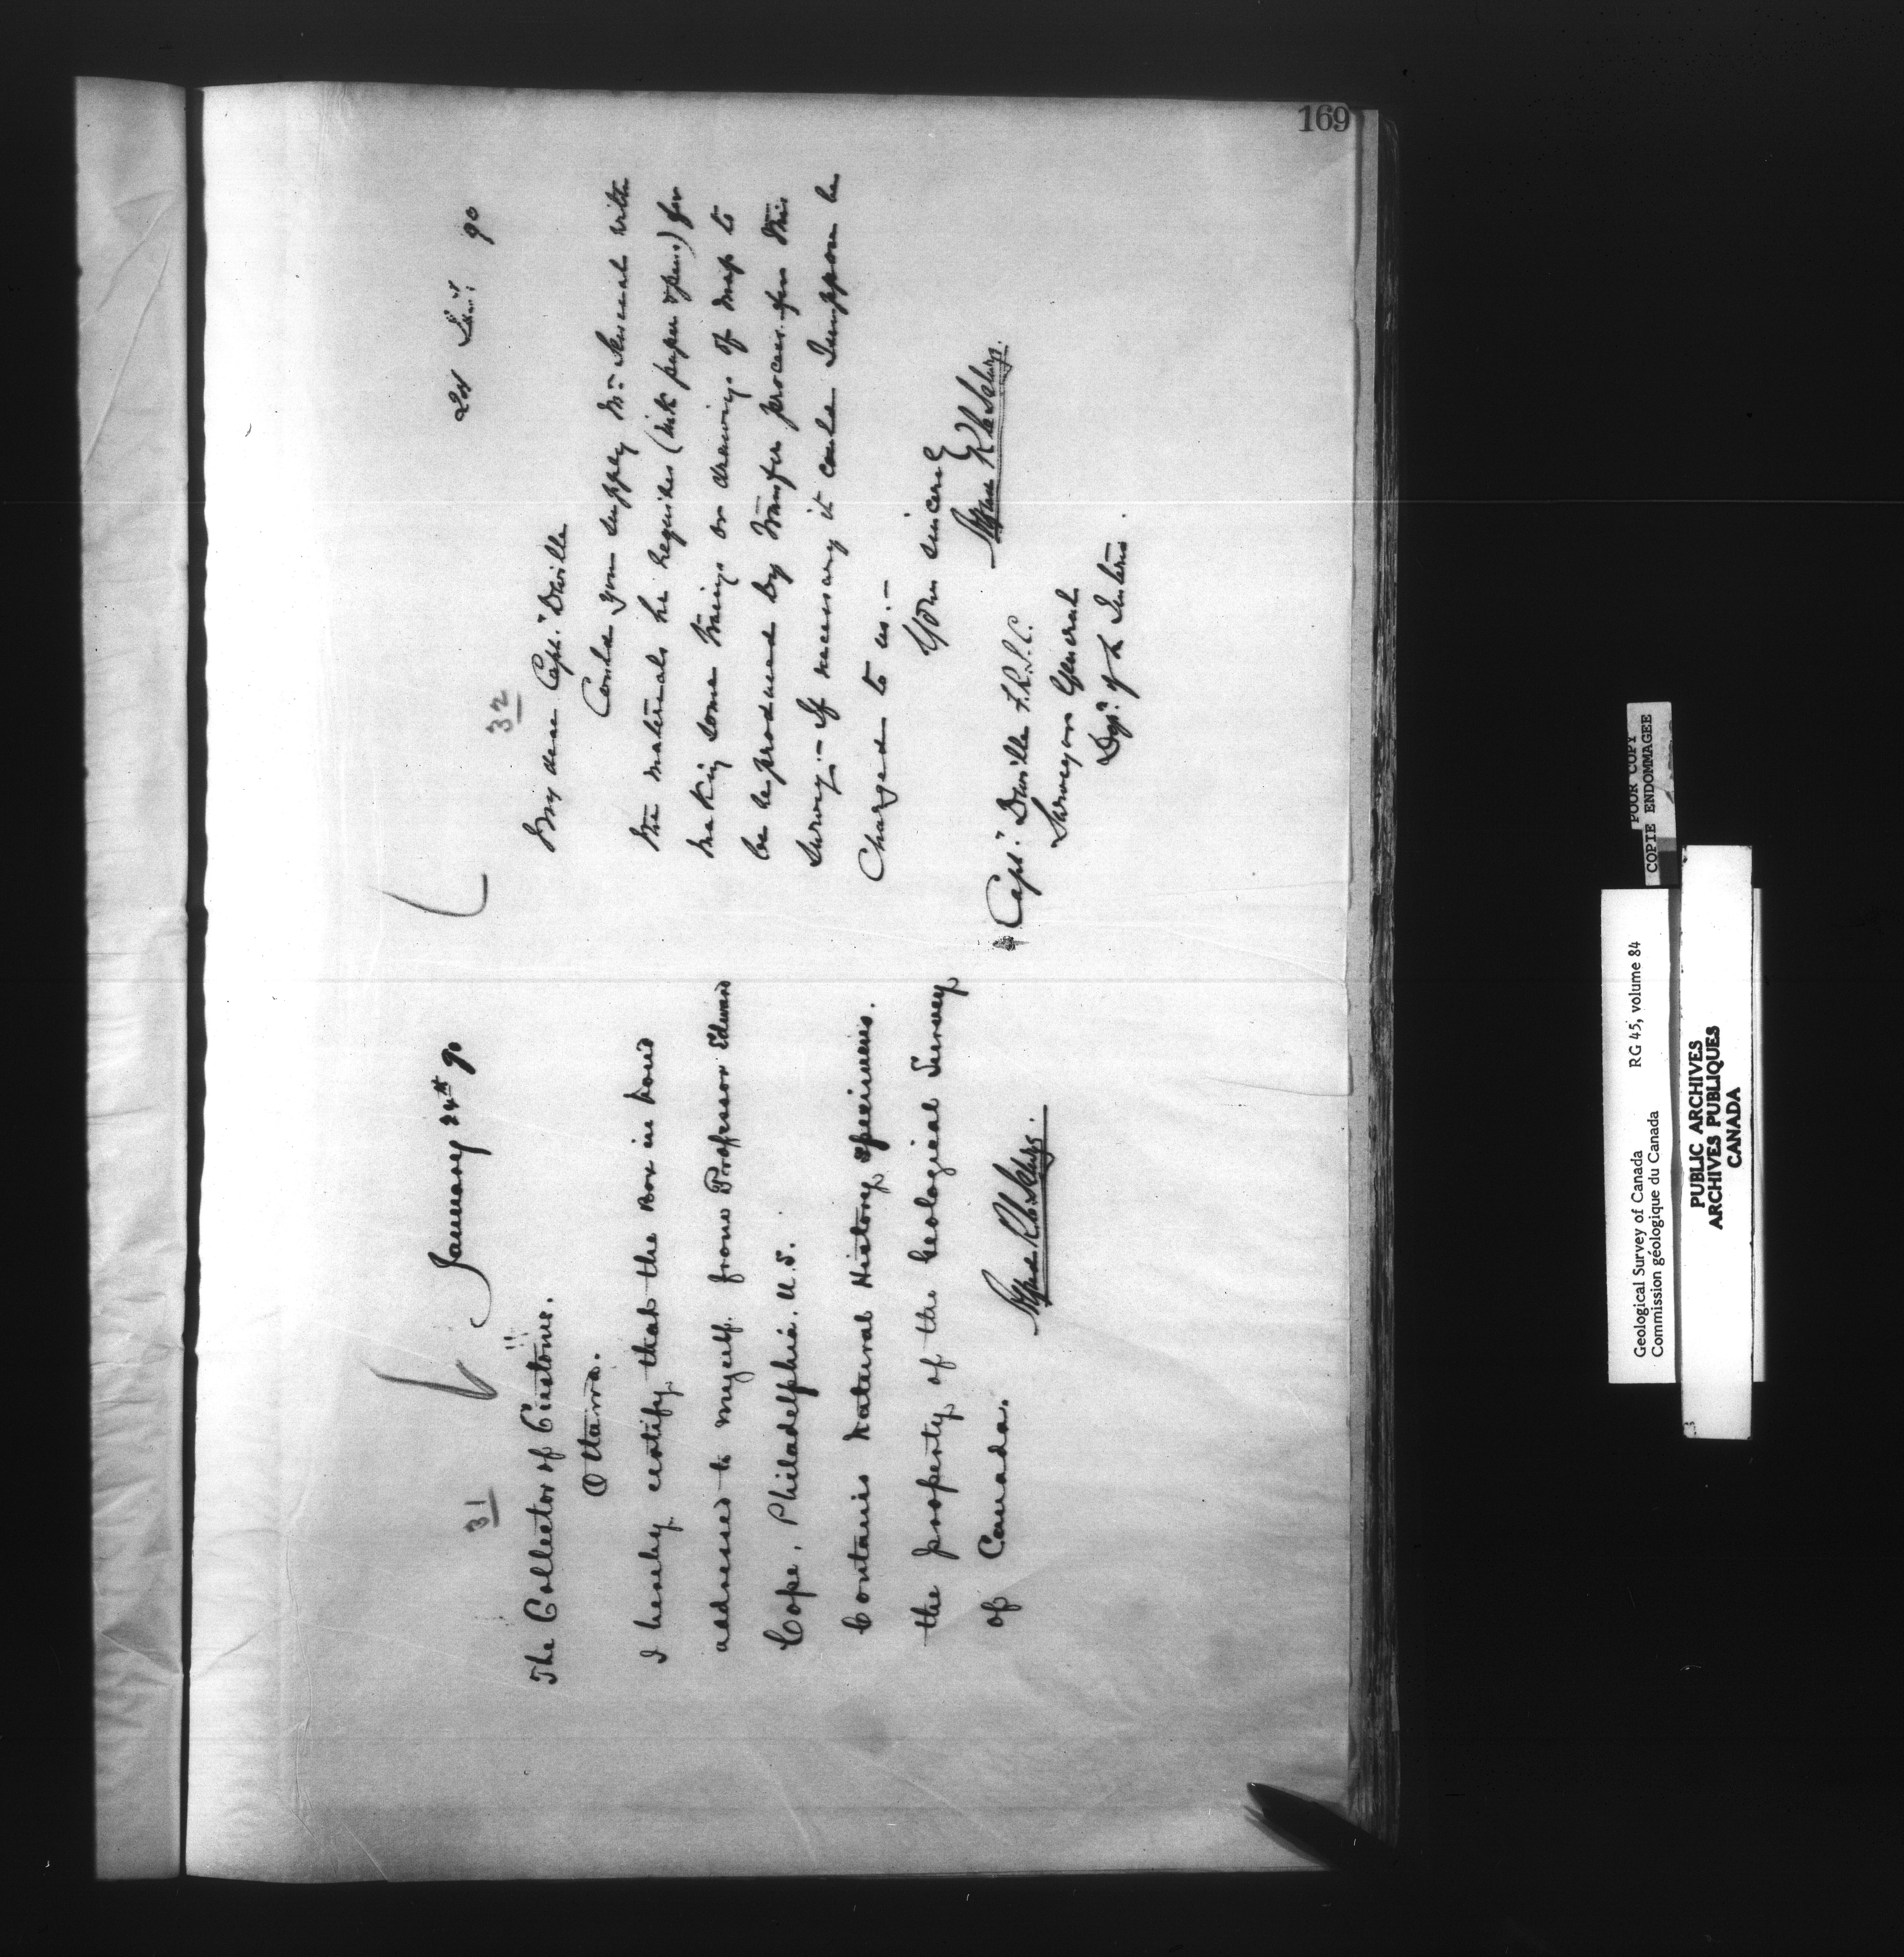 169
31
January 24th 90
The Collector of Customs.
Ottawa.
I hereby certify that the Box in bond
addressed to myself from Professor Edward
Cope, Philadelphia. U.S.
Contains Natural History specimens.
the property of the Geological Survey
of Canada.
Alfred R. C. Selwyn.
32
90
My dear Capt. Deville
Could you supply Mr. Senecal with
the materials he requires (ink paper & pens) for
making some tracings or drawings of map to
be reproduced by transfer process for this
Survey:- If necessary it could I suppose be
Charged to us.-
Yours sincerely
Alfred R C Selwyn.
Capt. Deville F.R.S.C.
Surveyor General
Dept. of the Interior.
POOR COPY
COPIE ENDOMMAGEE
Geological Survey of Canada RG 45, volume 84
Commission géologique du Canada
PUBLIC ARCHIVES
ARCHIVES PUBLIQUES
CANADA